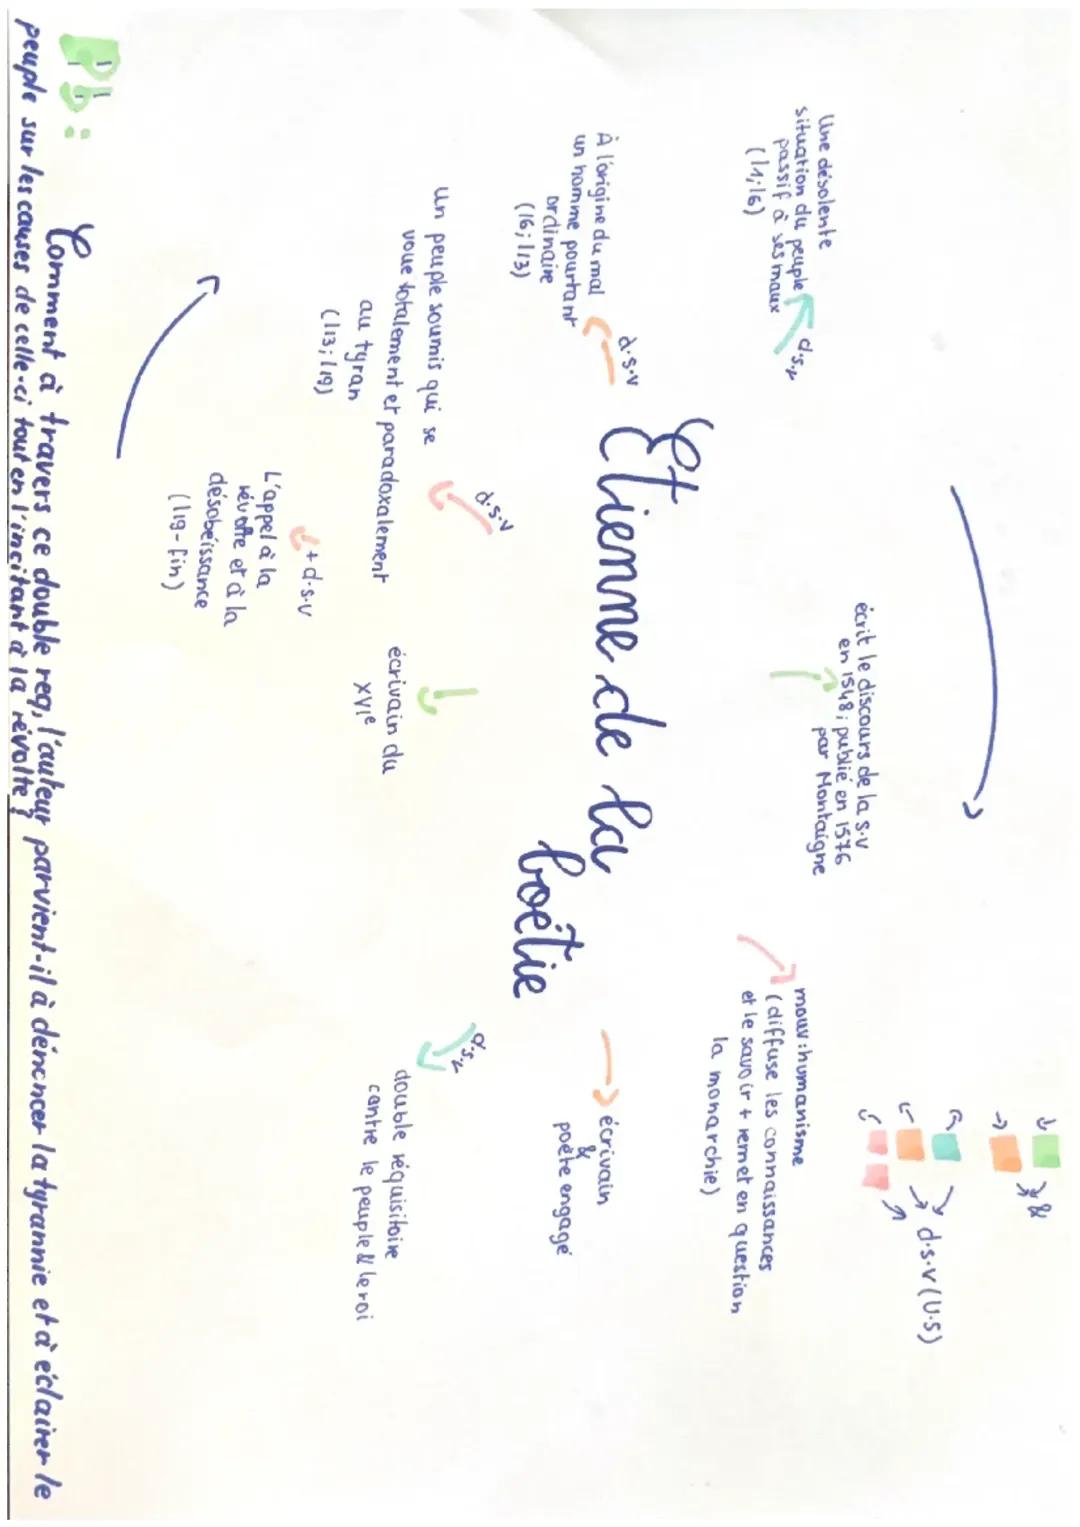 Une désolente
situation du peuple
passif à ses maux
(l1; l6)
d.s.v
écrit le discours de la s.v
en 1548; publié en 1576
par Montaigne
mouv : humanisme
(diffuse les connaissances
et le savoir + remet en question
la monarchie)
&
d.s.v (U.S)
À l'origine du mal
un homme pourtant
ordinaire
(l6; l13)
d.s.v
Etienne de la
boétie
écrivain
&
poète engagé
un peuple soumis qui se
voue totalement et paradoxalement
au tyran
(l13; l19)
d.s.v
+ d.s.v
L'appel à la
révolte et à la
désobéissance
(l19 - fin)
écrivain du
XVIe
d.s.v
double réquisitoire
contre le peuple & le roi
Pb :
Comment à travers ce double req, l'auteur parvient-il à déncncer la tyrannie et à éclairer le
peuple sur les causes de celle-ci tout en l'incitant à la révolte ?